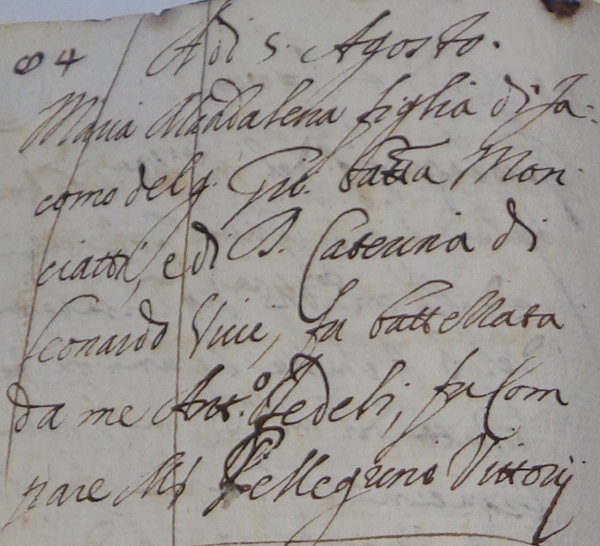 84 Adi 5. Agosto.
Maria Maddalena figlia di Ja:
como del q. Gio. Batta Mon
ciatti, e di D. Caterina di
Leonardo Vive, fu battezzata
da me Ant.o Fedeli, fu Com
pare Mr Pellegrino Vittorij